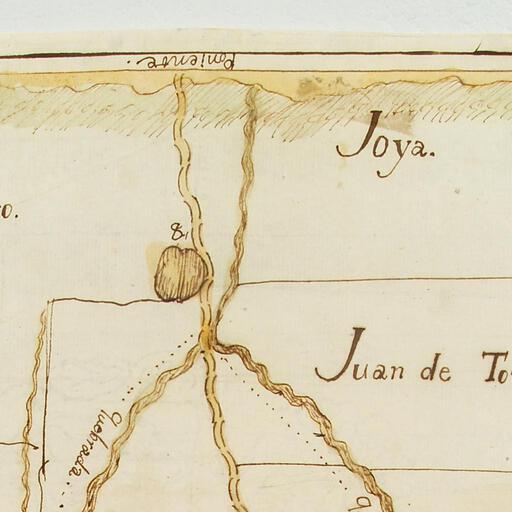 Poniente.
Joya.
&
Juan de
Quebrada